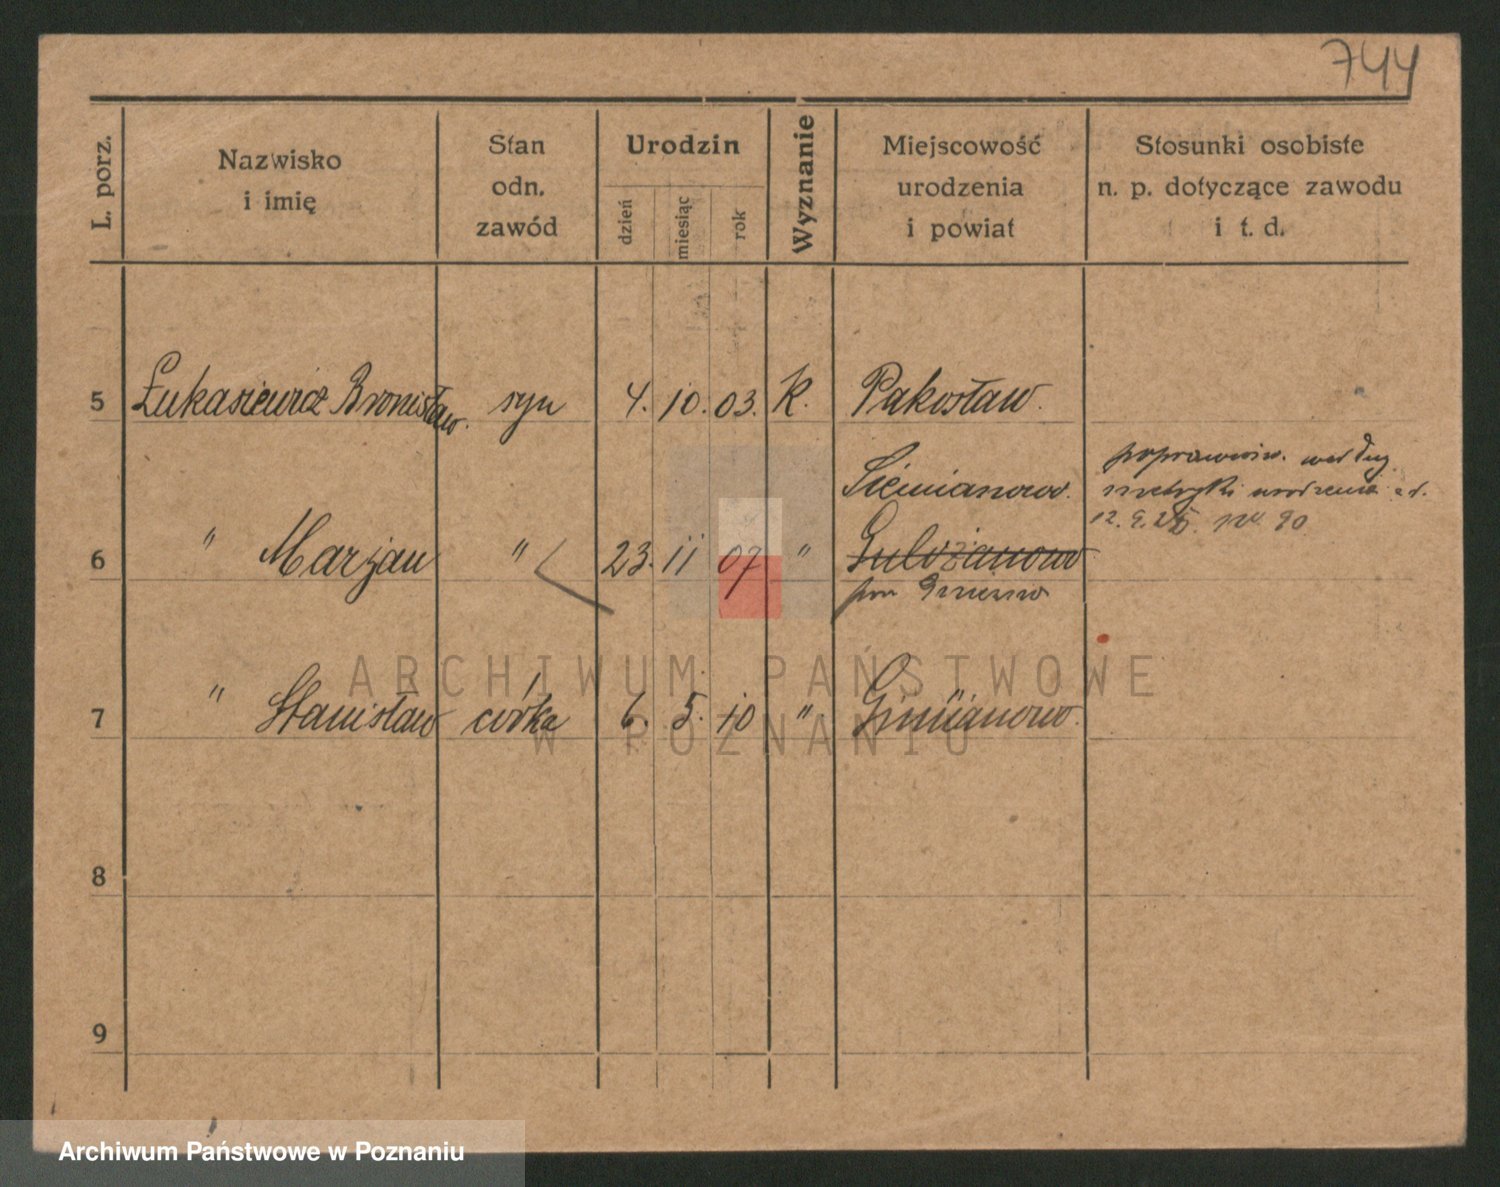 744
L. porz.
Nazwisko
i imię
Stan
odn.
zawód
Urodzin
dzień
miesiąc
rok
Wyznanie
Miejscowość
urodzenia
i powiat
Stosunki osobiste
n. p. dotyczące zawodu
i t. d.
5 Łukasiewicz Bronisław. syn 4. 10. 03. K. Pakosław.
Siemianowo. poprawiono. według
metryki urodzenia z d.
12. 9. 25. nr. 90
6 " Marjan " 23. 11 07 "
pow Gniezno
7 " Stanisław córka 6. 5. 10 "
8
9
ARCHIWUM PAŃSTWOWE
W POZNANIU
Archiwum Państwowe w Poznaniu